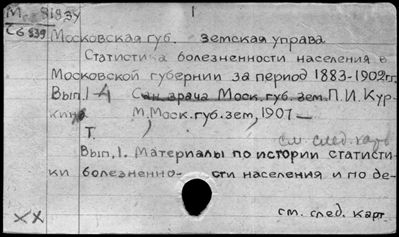 М 818
С6 839
Московская губ. земская управа
Статистика болезненности населения в
Московской губернии за период 1883-1902гг.
Вып.1-4 Сан. врача Моск. губ. зем. П.И. Кур-
кина М, Моск. губ. зем, 1907 -
Т.
см. след. карт
Вып, 1. Материалы по истории статисти-
ки болезненно- сти населения и по де-
хх
см. след. карт.